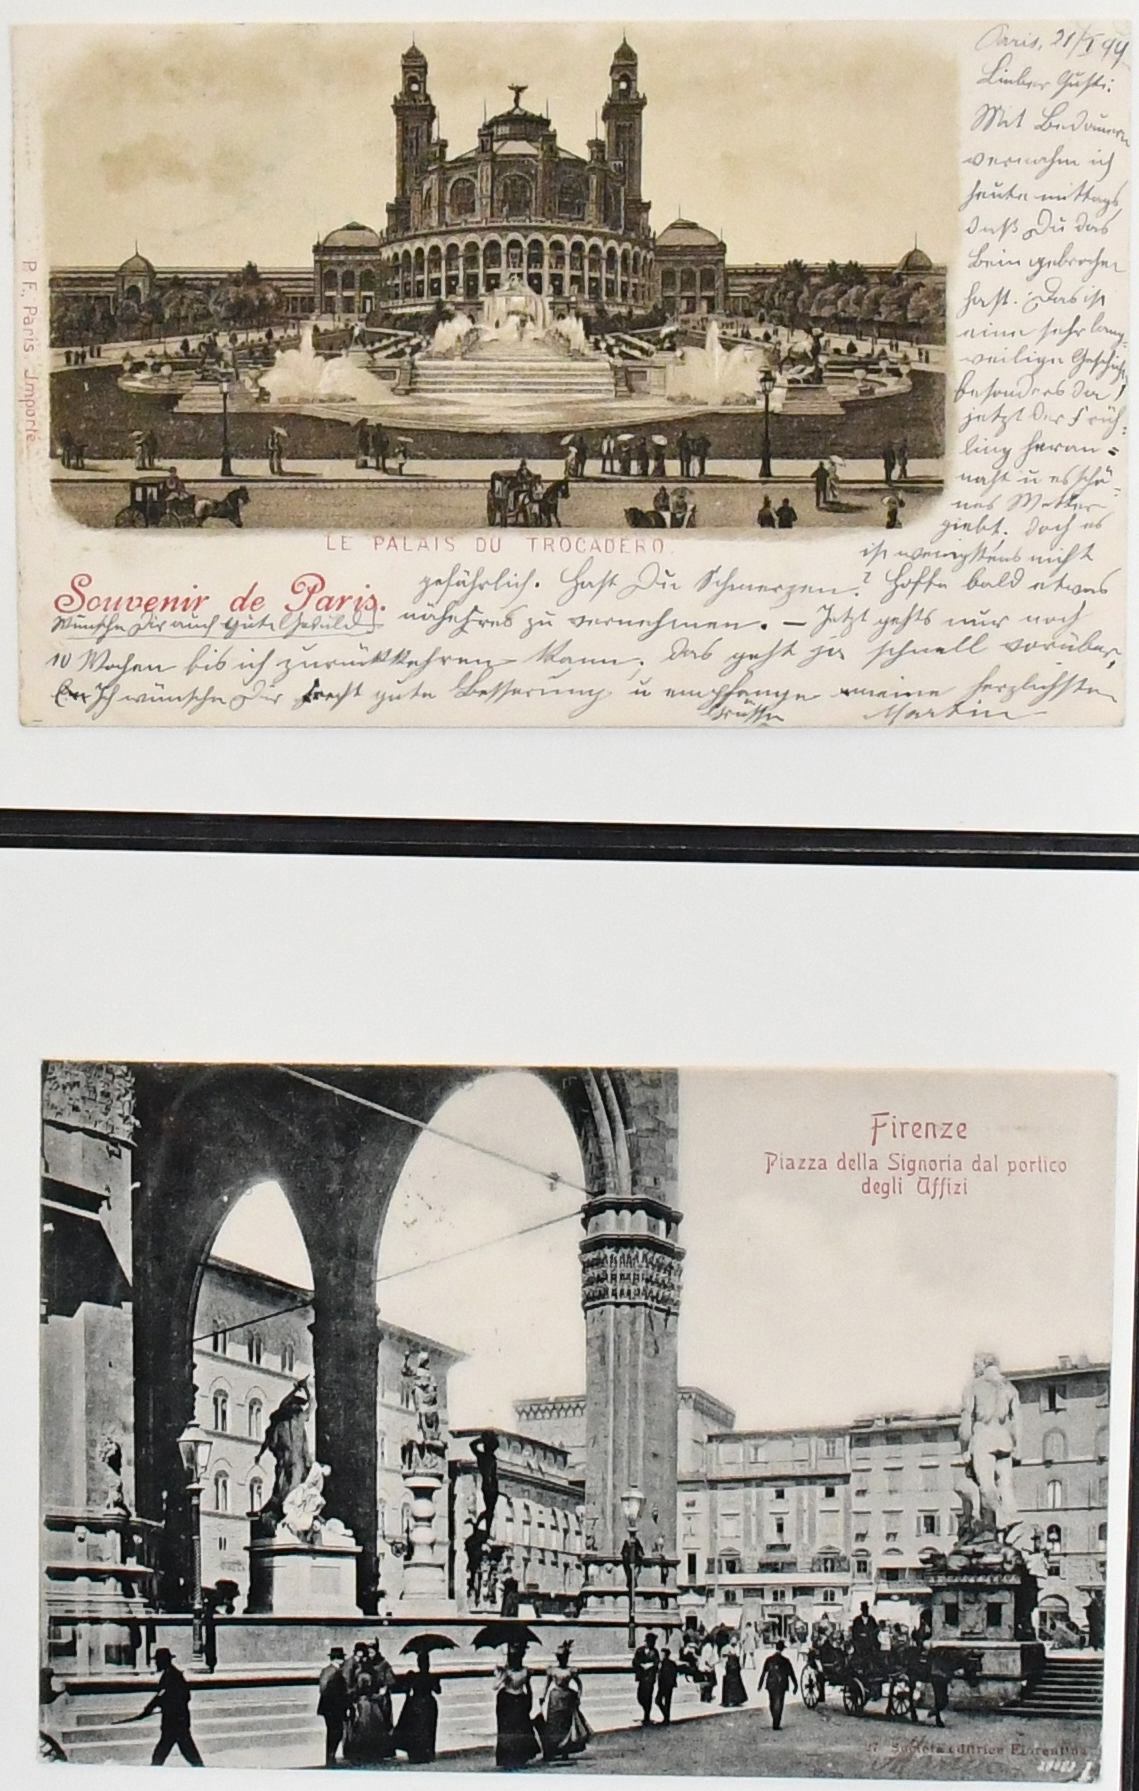 Paris, 21/I 99
Lieber Gusti:
Mit Bedauern
vernahm ich
heute mittags
daß Du das
Bein gebrochen
hast. Das ist
eine sehr lang-
weilige Geschichte
besonders da
jetzt der Früh-
ling heran-
naht u es schö-
nes Wetter
giebt. Doch es
ist wenigstens nicht
gefährlich. Hast Du Schmerzen? Hoffe bald etwas
näheres zu vernehmen. — Jetzt gehts nur noch
10 Wochen bis ich zurückkehren kann. Das geht ja schnell vorüber,
Ich wünsche Dir recht gute Besserung u empfange meine herzlichsten
Grüsse Martin
Wünsche Dir auch gute Geduld
P. F. Paris Importé
LE PALAIS DU TROCADERO.
Souvenir de Paris.
Firenze
Piazza della Signoria dal portico
degli Uffizi
27 Società editrice Fiorentina